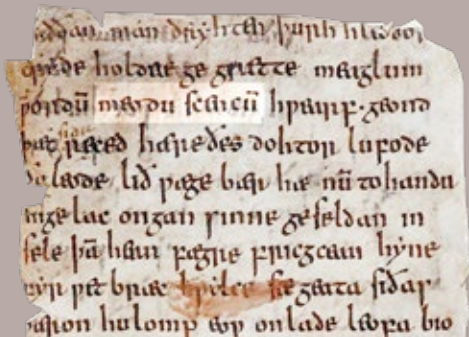 man dryhten þurh hleoðor
cƿyde holdne ge grette meaglum
ƿordū meodu scencū hƿearf · geond
þæt side reced hæreðes dohtor lufode
ða leode lið ƿæge bær hæ nū to handa
hige lac ongan sinne geseldan in
sele þā hean fægre fricgcean hyne
fyr ƿet bræc hƿilce sægeata siðas
ƿæron hu lomp eoƿ on lade leofa bio